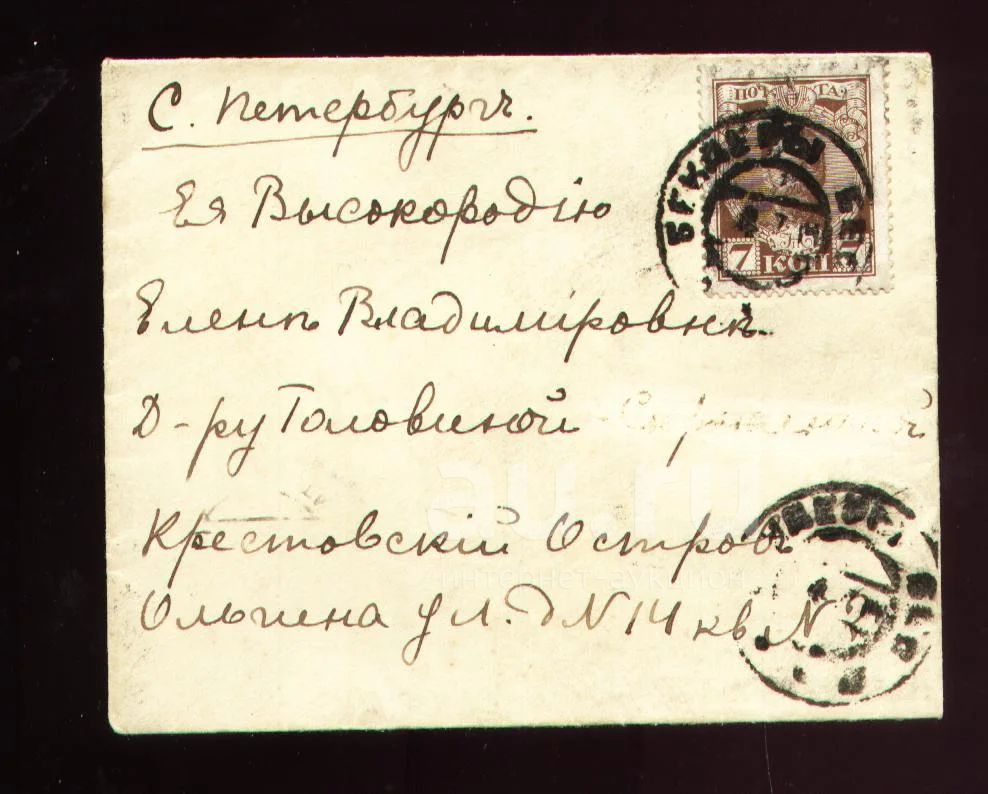 С. Петербургъ.
Ея Высокородію
Еленѣ Владиміровнѣ
Д-ру Головиной
Крестовскій Островъ
Ольгина ул. д N 14 кв N
ПОЧТА
7 КОП 7
au.ru
интернет-аукцион